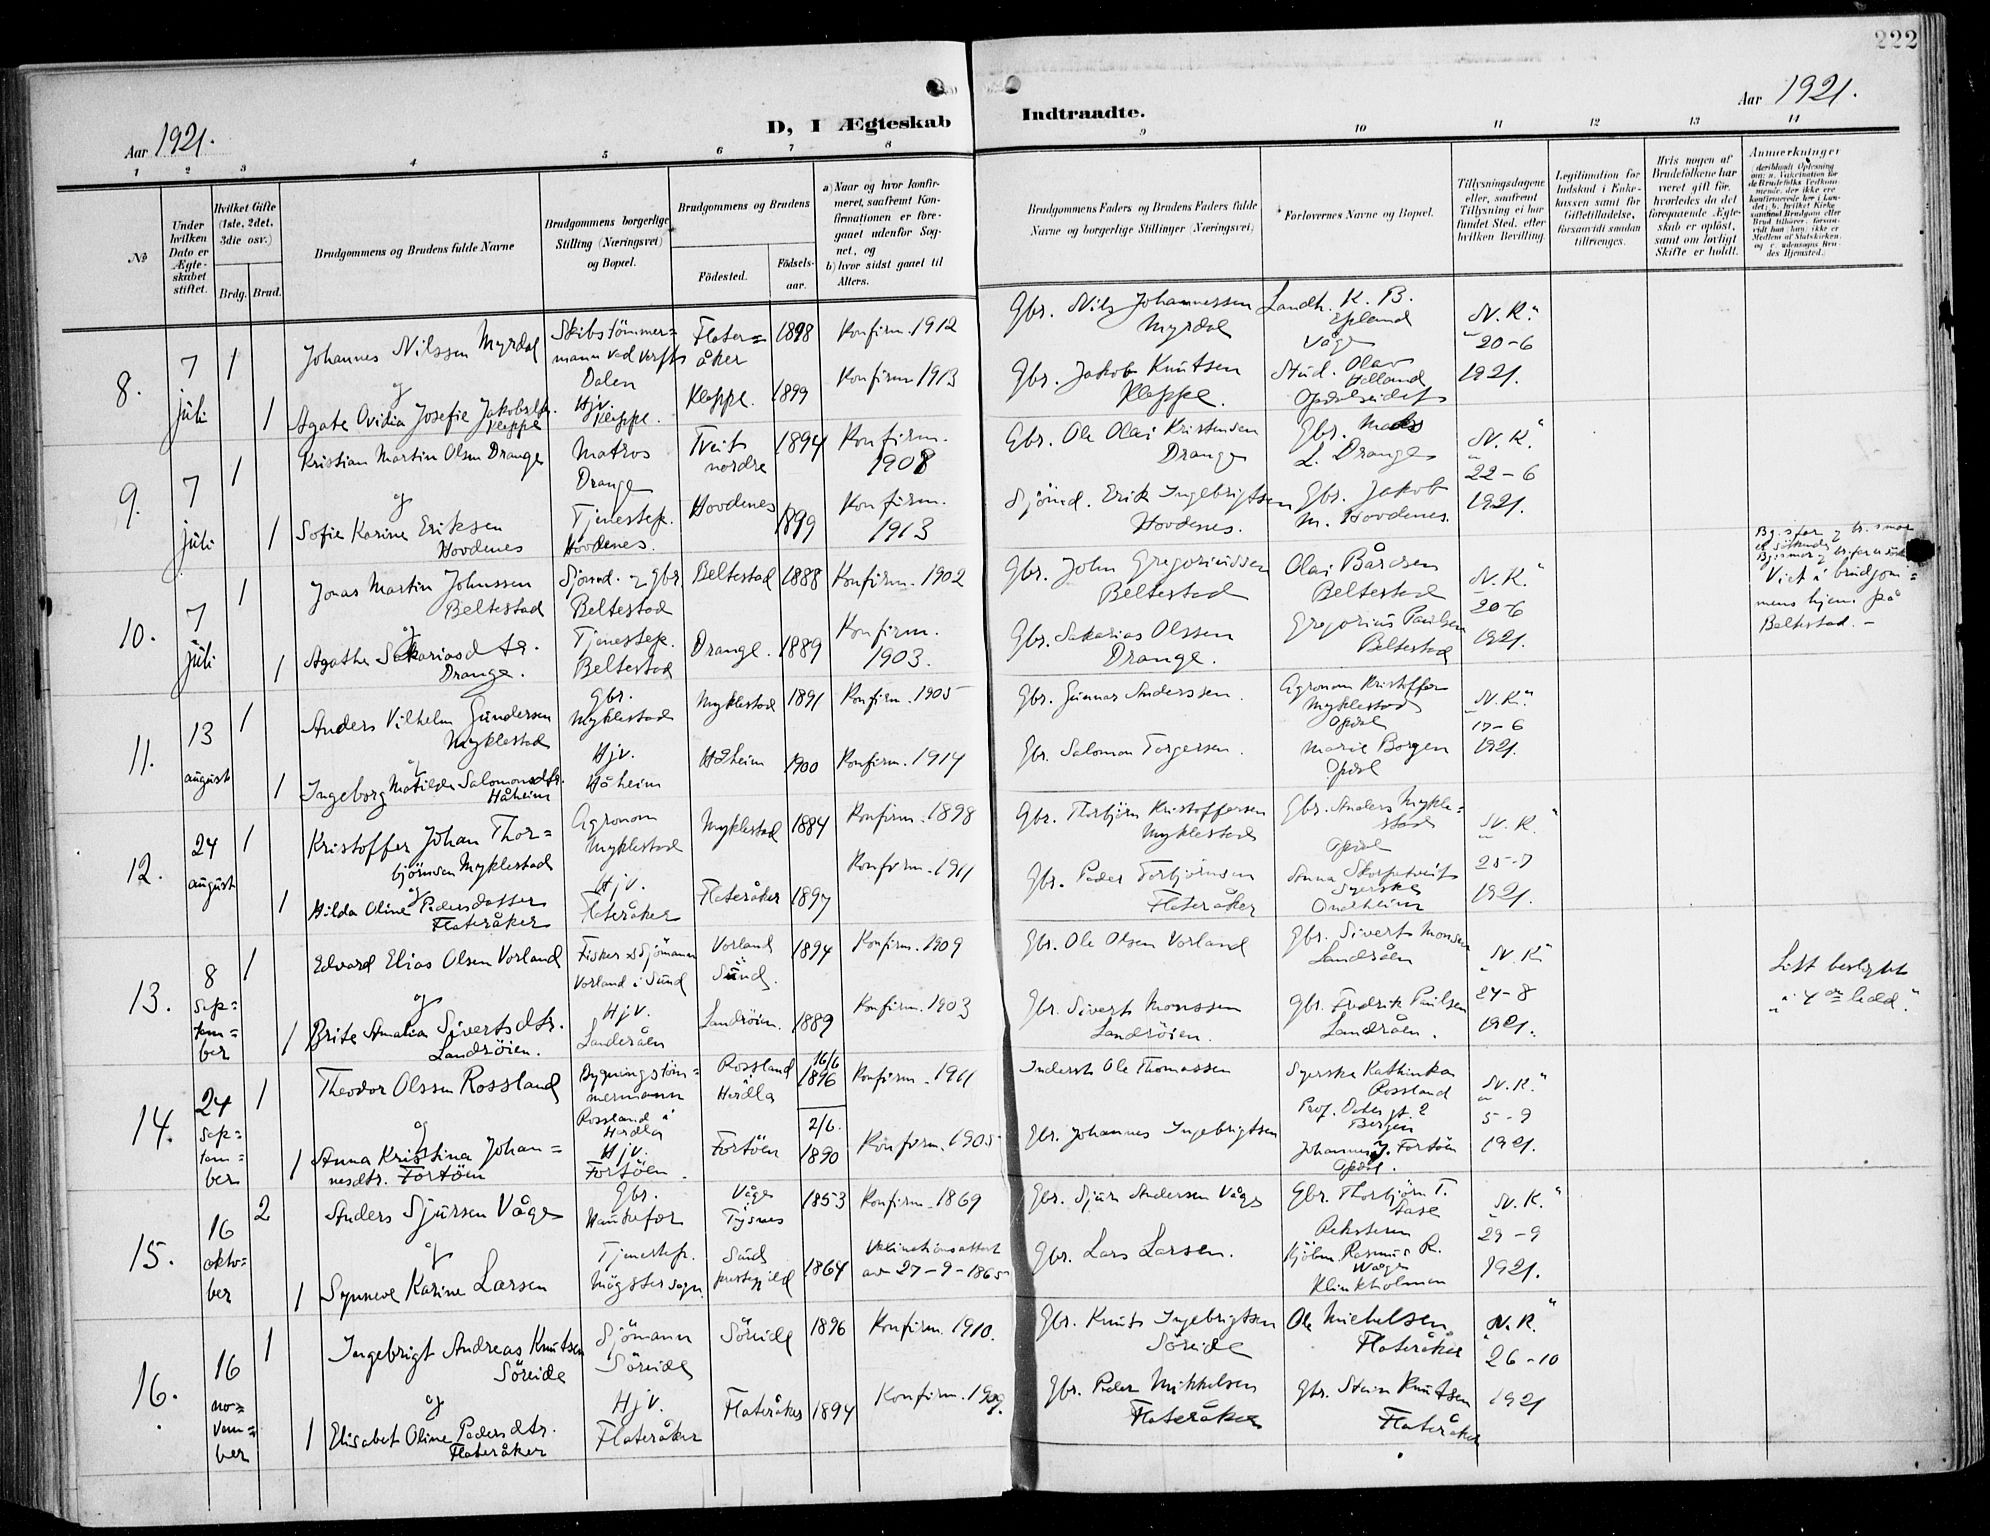 222
Aar 1921.
D, I Ægteskab Indtraadte.
Aar 1921.
1 2 3 4 5 6 7 8 9 10 11 12 13 14
No
Under hvilken Dato er Ægteskabet stiftet.
Hvilket Gifte (1ste, 2det, 3die osv.)
Brdg. Brud.
Brudgommens og Brudens fulde Navne
Brudgommens borgerlige Stilling (Næringsvei) og Bopæl.
Brudgommens og Brudens
Fødested.
Fødselsaar.
a) Naar og hvor konfirmeret, saafremt Konfirmationen er foregaaet udenfor Sognet, og
b) hvor sidst gaaet til Alters.
Brudgommens Faders og Brudens Faders fulde Navne og borgerlige Stillinger (Næringsvei)
Forlovernes Navne og Bopæl.
Tillysningsdagene eller, saafremt Tillysning ei har fundet Sted, efter hvilken Bevilling.
Legitimation for Indskud i Enkekassen samt for Giftetilladelse, forsaavidt saadan tiltrænges.
Hvis nogen af Brudefolkene har været gift før, hvorledes da det foregaaende Ægteskab er opløst, samt om lovligt Skifte er holdt.
Anmerkninger
8.
7 juli
1
Johannes Nilssen Myrdal
Skibstömmer=
mann ved Verft
Dalen
Flater=
åker
1898
Konfirm. 1912
Gbr. Nils Johannessen
Myrdal
Landh. K. B.
Våge
N. K."
20-6
1921.
og
1
Agate Ovidia Josefie Jakobsdtr.
Kleppe
Hjv.
Kleppe.
Kleppe.
1899
Konfirm 1913
Gbr. Jakob Knutsen
Kleppe.
Stud. Olav
9.
7 juli
1
Kristian Martin Olsen Drange
Matros
Drange
Tveit
nordre
1894
Konfirm.
1908
Gbr. Ole Olai Kristensen
Drange
Gbr. Mads
L. Drange
N. K."
22-6
1921.
og
1
Sofie Karine Eriksen
Hovdenes
Tjenestep.
Hovdenes.
Hovdenes
1899
Konfirm.
1913
Sjömd. Erik Ingebrigtsen
Hovdenes.
Gbr. Jakob
M. Hovdenes.
10.
7 juli
1
Jonas Martin Johnssen
Beltestad
Sjömd. og Gbr.
Beltestad
Beltestad
1888
Konfirm. 1902
Gbr. John Gregoriussen
Beltestad
Olai Bårdsen
Beltestad
N. K."
20-6
1921.
Viet i brudgom=
mens hjem på
Beltestad. -
og
1
Agathe Sakariasdtr.
Drange.
Tjenestep.
Beltestad
Drange.
1889
Konfirm.
1903.
Gbr. Sakarias Olssen
Drange.
Gregorius Paulsen
Beltestad
11.
13 august
1
Anders Vilhelm Gundersen
Myklestad
Gbr.
Myklestad
Myklestad
1891
Konfirm. 1905
Gbr. Gunnar Anderssen.
Agronom Kristoffer
Myklestad
Opdal
N. K."
17-6
1921.
og
1
Ingeborg Matilde Salomonsdtr.
Håheim
Hjv.
Håheim
Håheim
1900
Konfirm. 1914
Gbr. Salomon Torgersen.
Marie Borgen
Opdal
12.
24 august
1
Kristoffer Johan Thor=
björnsen Myklestad
Agronom
Myklestad
Myklestad
1884
Konfirm. 1898
Gbr. Thorbjörn Kristoffersen
Myklestad
Gbr. Anders Mykle=
stad
Opdal
N. K."
25-7
1921.
og
1
Hilda Oline Pedersdatter
Flateråker
Hjv.
Flateråker
Flateråker
1897
Konfirm. 1911
Gbr. Peder Torbjörnsen
Flateråker
Anna
Syerske
13.
8 Sep=
tem=
ber
1
Edvard Elias Olsen Vorland
Fisker & Sjömann
Vorland i Sund
Vorland
i Sund.
1894
Konfirm. 1909
Gbr. Ole Olsen Vorland
Gbr. Sivert Monsen
Landråen
N. K."
24-8
1921.
Litt beslegtet
i 4de ledd."
og
1
Brite Amalia Sivertsdtr.
Landröien.
Hjv.
Landeråen
Landröien.
1889
Konfirm. 1903
Gbr. Sivert Monssen
Landröien.
Gbr. Fredrik Paulsen
Landråen.
14.
24
Sep=
tem=
ber
1
Theodor Olssen Rossland
Bygningstöm=
mermann
Rossland i
Herdla
Rossland
Herdla
16/6
1896
Konfirm. 1911
Inderst Ole Thomassen
Syerske Kathinka
Rossland
Bergen
N. K."
5-9
1921.
og
1
Anna Kristina Johan=
nesdtr. Fortöen
Hjv.
Fortöen
Fortöen
2/6.
1890
Konfirm. 1905
Gbr. Johannes Ingebrigtsen
Johannes J. Fortöen
Opdal.
15.
16
okto=
ber
2
Anders Sjursen Våge
Gbr.
Haukefær
Våge
Tysnes
1853
Konfirm. 1869
Gbr. Sjur Andersen Våge
Gbr. Thorbjörn T.
N. K."
29-9
1921.
og
1
Synneve Karine Larsen
Tjenestep.
Mögster sogn.
Sund
prestegjeld
1864
Vaksinationsattest
av 27-9-1865
Gbr. Lars Larsen.
Kjöbm. Rasmus R.
Våge
Klinkholmen
16.
16
no=
vem=
ber
1
Ingebrigt Andreas Knutsen
Söreide
Sjömann
Söreide
Söreide
1896
Konfirm. 1910.
Gbr. Knut Ingebrigtsen
Söreide
Ole Michelsen
Flateråker
N. K."
26-10
1921
og
1
Elisabet Oline Pedersdtr.
Flateråker
Hjv.
Flateråker
Flateråker
1894
Konfirm. 1909.
Gbr. Peder Mikkelsen
Flateråker
Gbr. Stein Knutsen
Flateråker